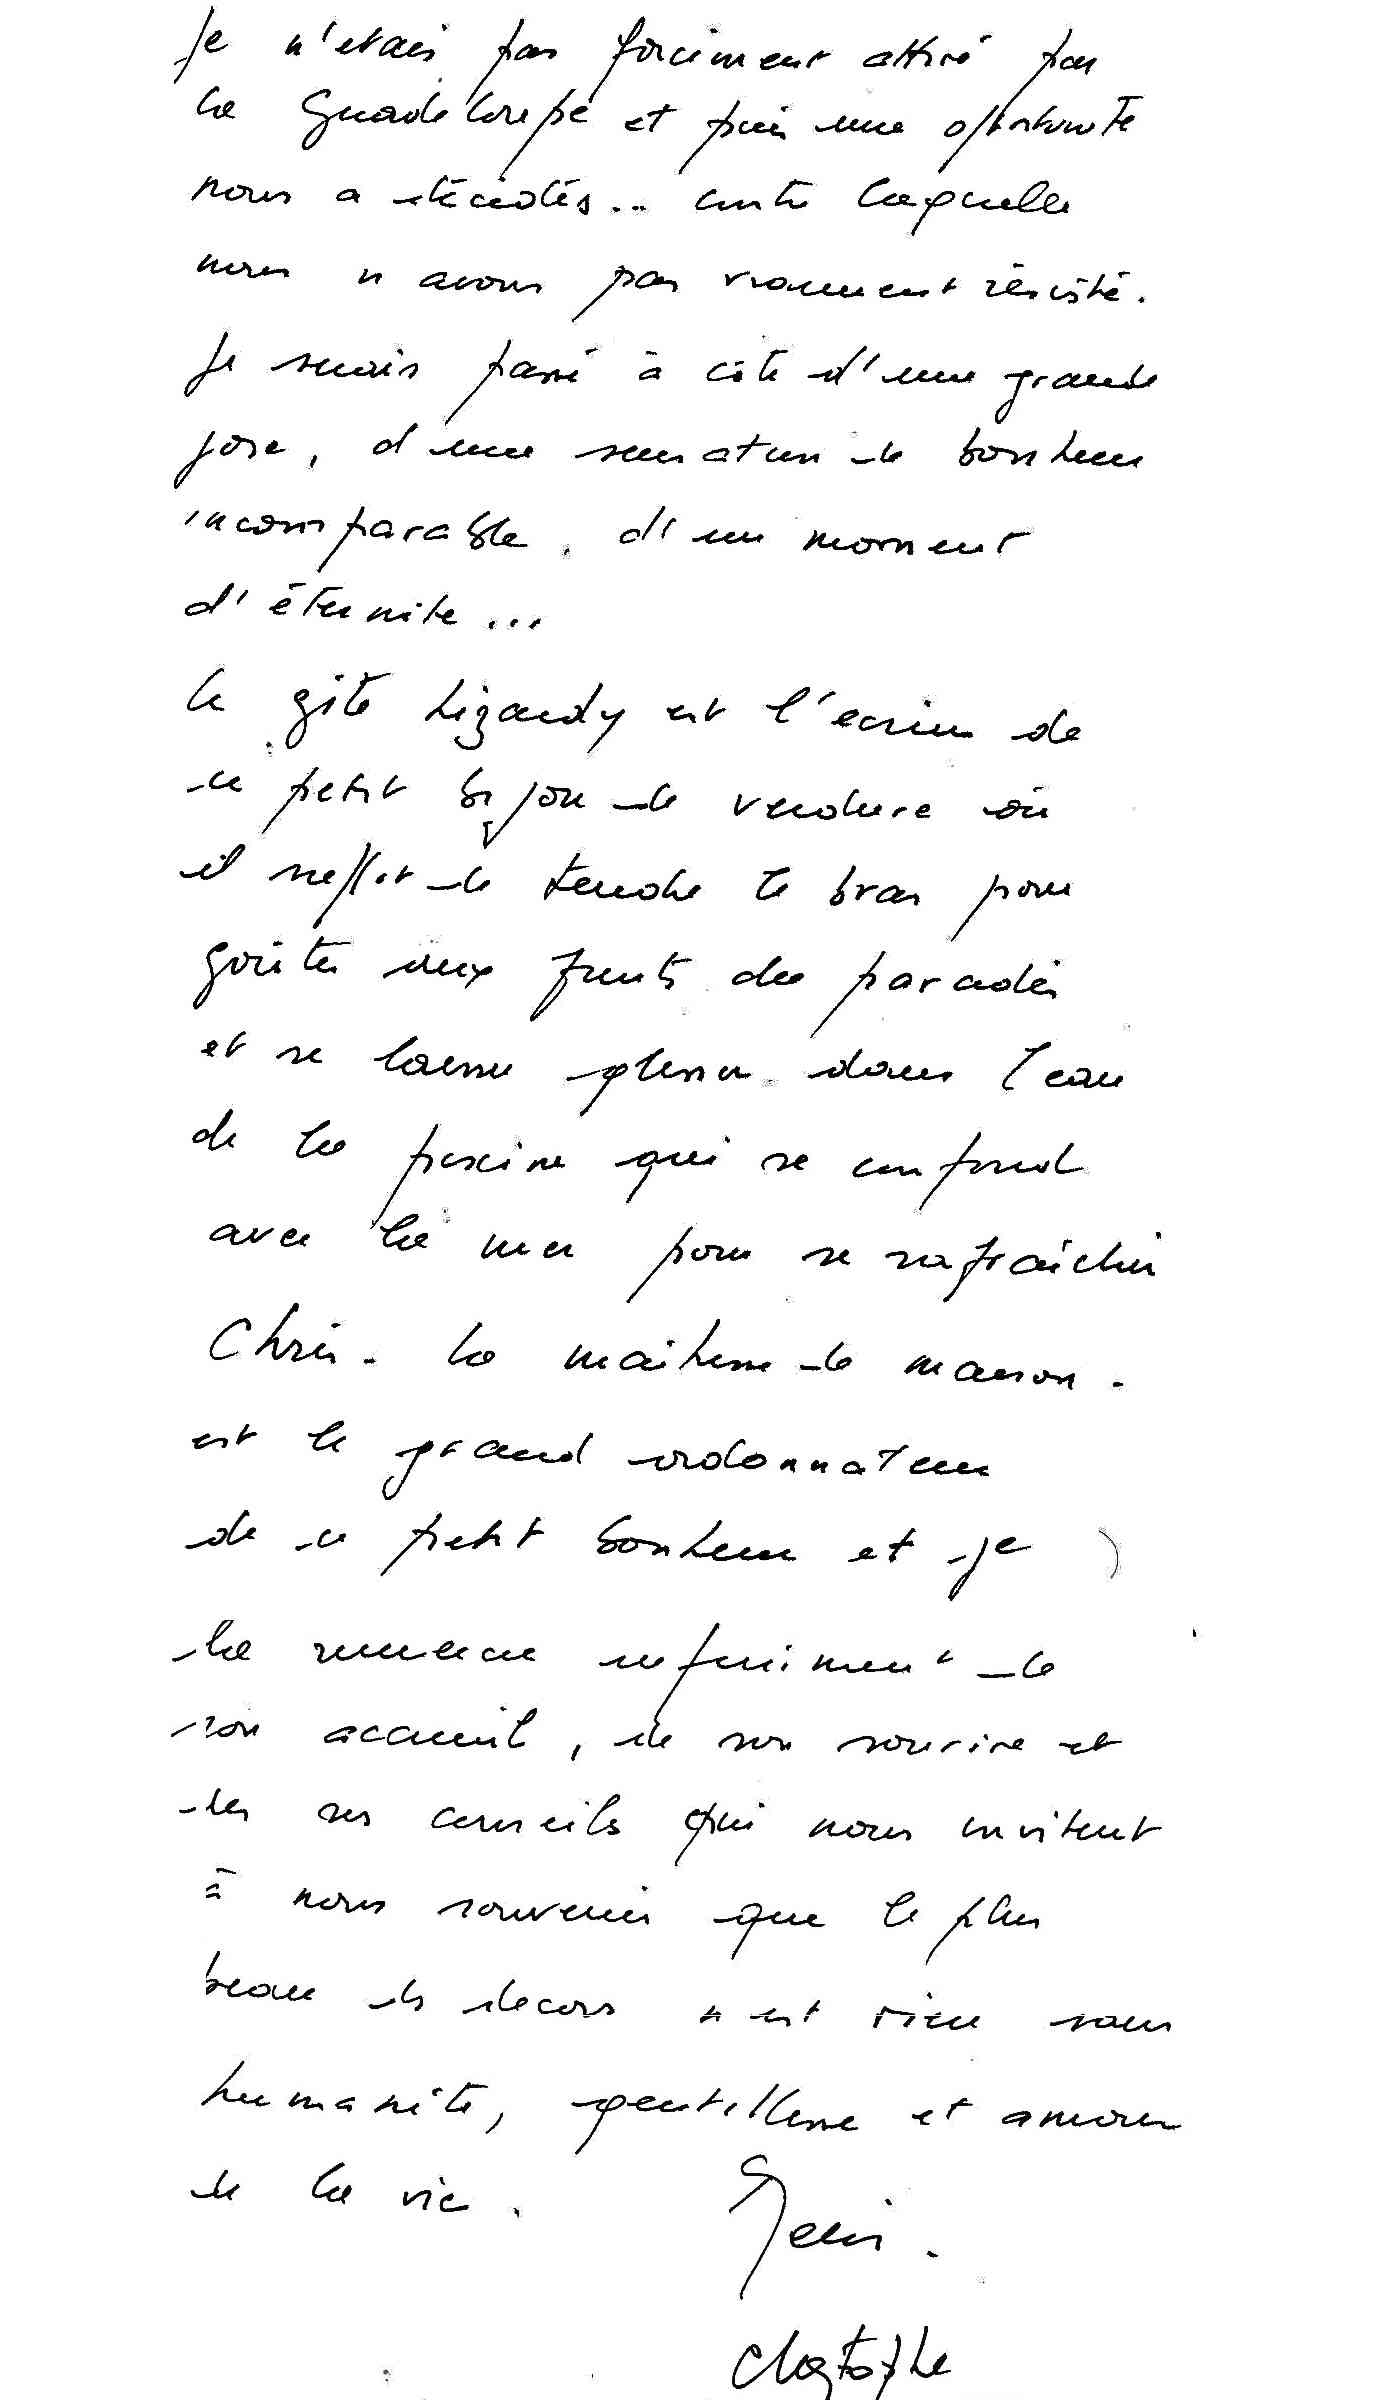 Je n'étais pas forcément attiré par
la Guadeloupe et puis une opportunité
nous a décidés... contre laquelle
nous n'avons pas vraiment résisté.
Je serais passé à côté d'une grande
joie, d'une sensation de bonheur
incomparable, d'un moment
d'éternité...
Le gîte Lizardy est l'écrin de
ce petit bijou de verdure où
il suffit de tendre le bras pour
goûter aux fruits du paradis
et se laisser glisser dans l'eau
de la piscine qui se confond
avec la mer pour se rafraîchir
Chris - la maîtresse de maison -
est le grand ordonnateur
de ce petit bonheur et je
la remercie infiniment de
son accueil, de son sourire et
de ses conseils qui nous invitent
à nous souvenir que le plus
beau des décors n'est rien sans
humanité, gentillesse et amour
de la vie.
Christophe